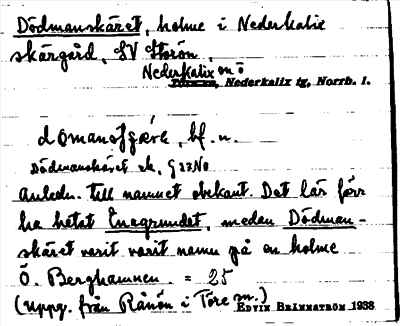 Dödmanskäret, holme i Nederkalix
skärgård, SV Storön.
Nederkalix sn ö
Nederkalix tg, Norrb. l.
Dödmanskäret ek, G23No
Anledn. till namnet obekant. Det lär förr
ha hetat Enagrundet, medan Dödman-
skäret varit varit namn på en holme
Ö. Berghamnen. = 25
(Uppg. från Rånön i Töre sn.)
EDVIN BRÄNNSTRÖM 1938